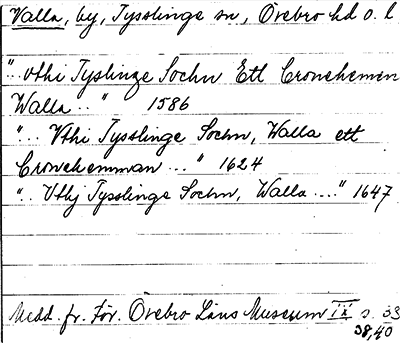 Valla, by, Tysslinge sn, Örebro hd o. l
"..vthi Tyslinge Sochn Ett Cronehemen
Walla .." 1586
".. Vthi Tysslinge Sochn, Walla ett
Cronehemman ..." 1624
".. Vthj Tysslinge Sochn, Walla ...." 1647
Medd. fr. För. Örebro Läns Museum IX s. 33
38, 40